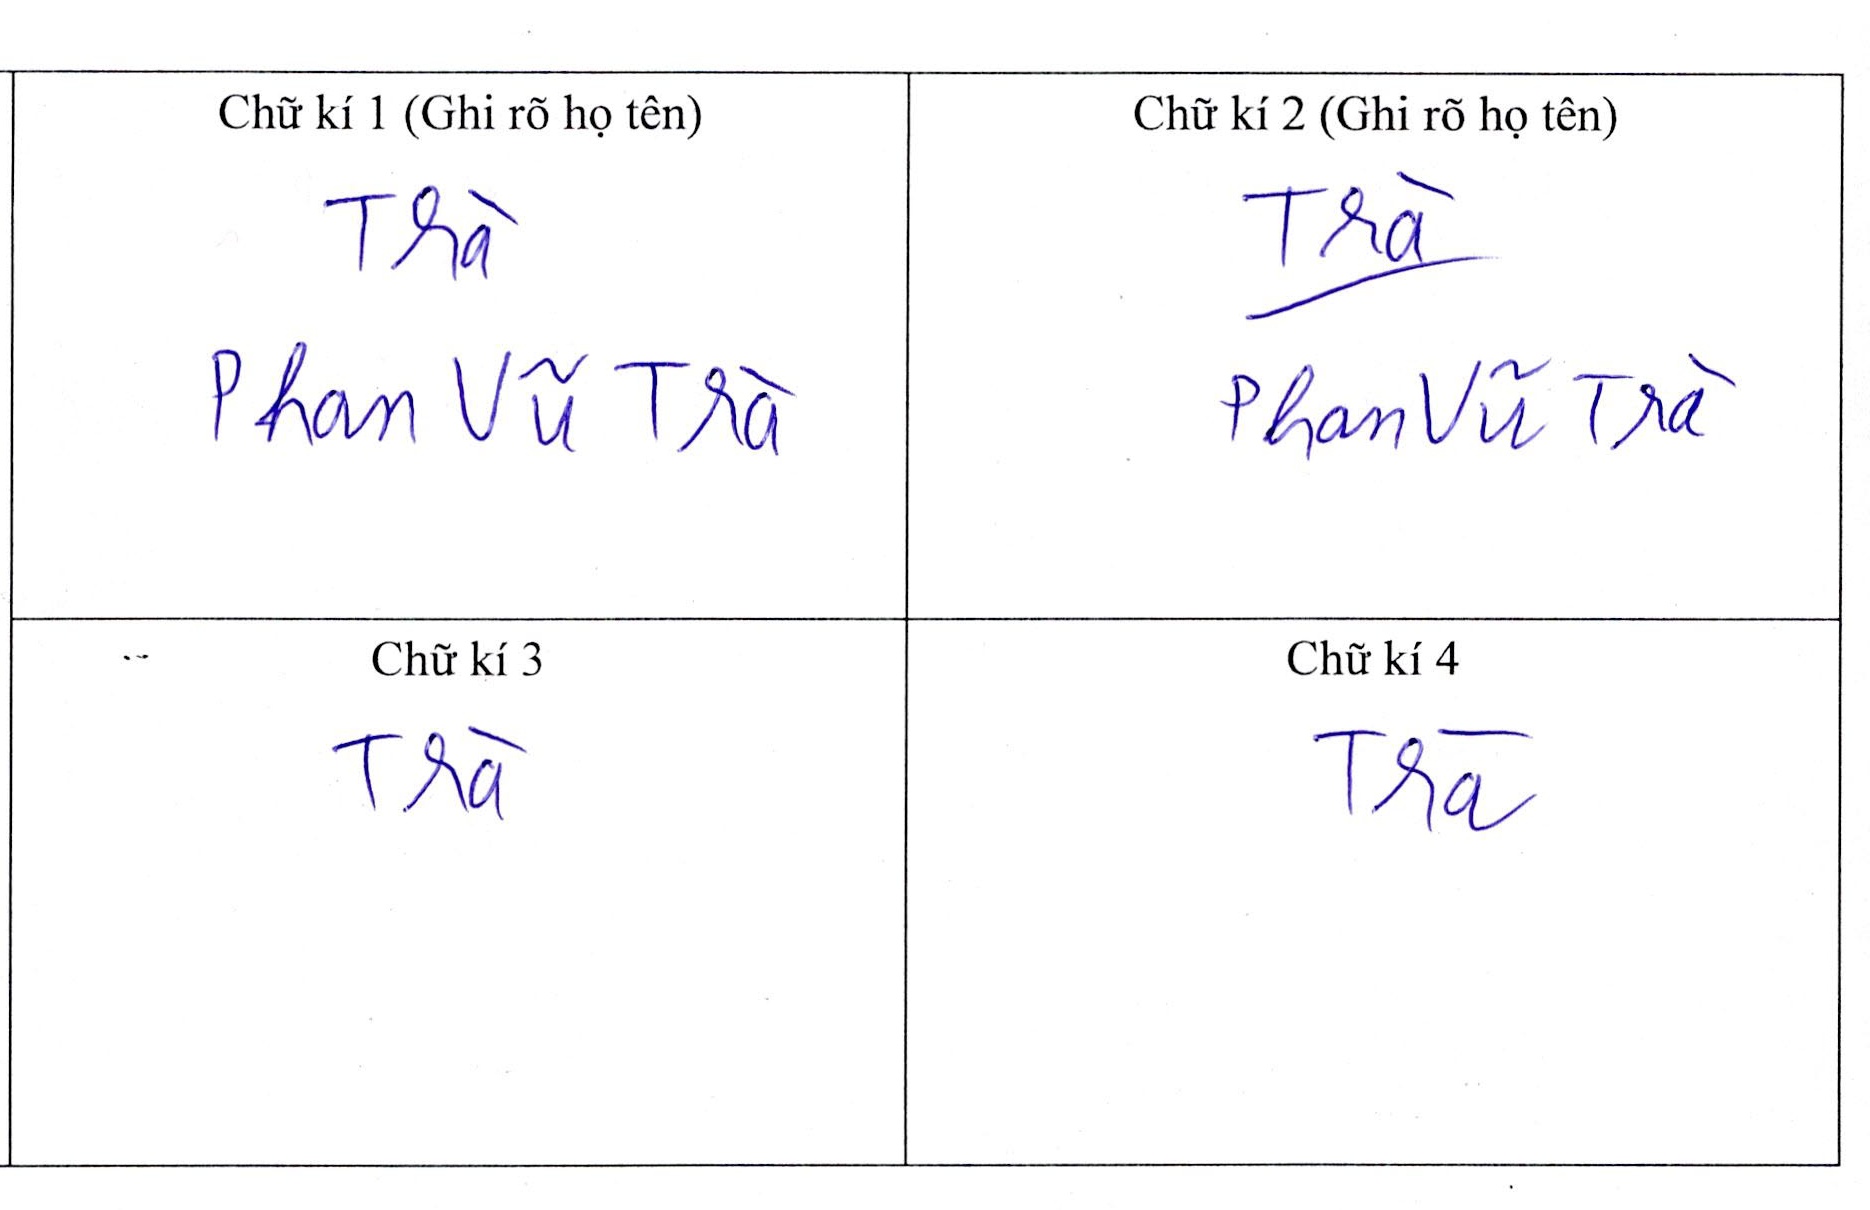 Chữ kí 1 (Ghi rõ họ tên)
Trà
Phan Vũ Trà
Chữ kí 2 (Ghi rõ họ tên)
Trà
Phan Vũ Trà
Chữ kí 3
Trà
Chữ kí 4
Trà